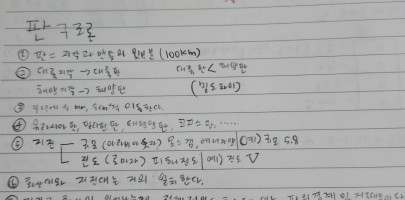 판 구조론
① 판 = 지각과 맨틀의 윗부분 (100km)
② 대륙지각 → 대륙판 대륙판 < 해양판
해양지각 → 해양판 (밀도차이)
③ 이동한다.
④ 유라시아판, 태평양판, ......
⑤ 지진 규모 (아라비아숫자) 에너지양 (예) 규모 5.8
진도 (로마자) 피해정도 예) 진도 V
⑥ 화산대와 지진대는 거의 일치한다.